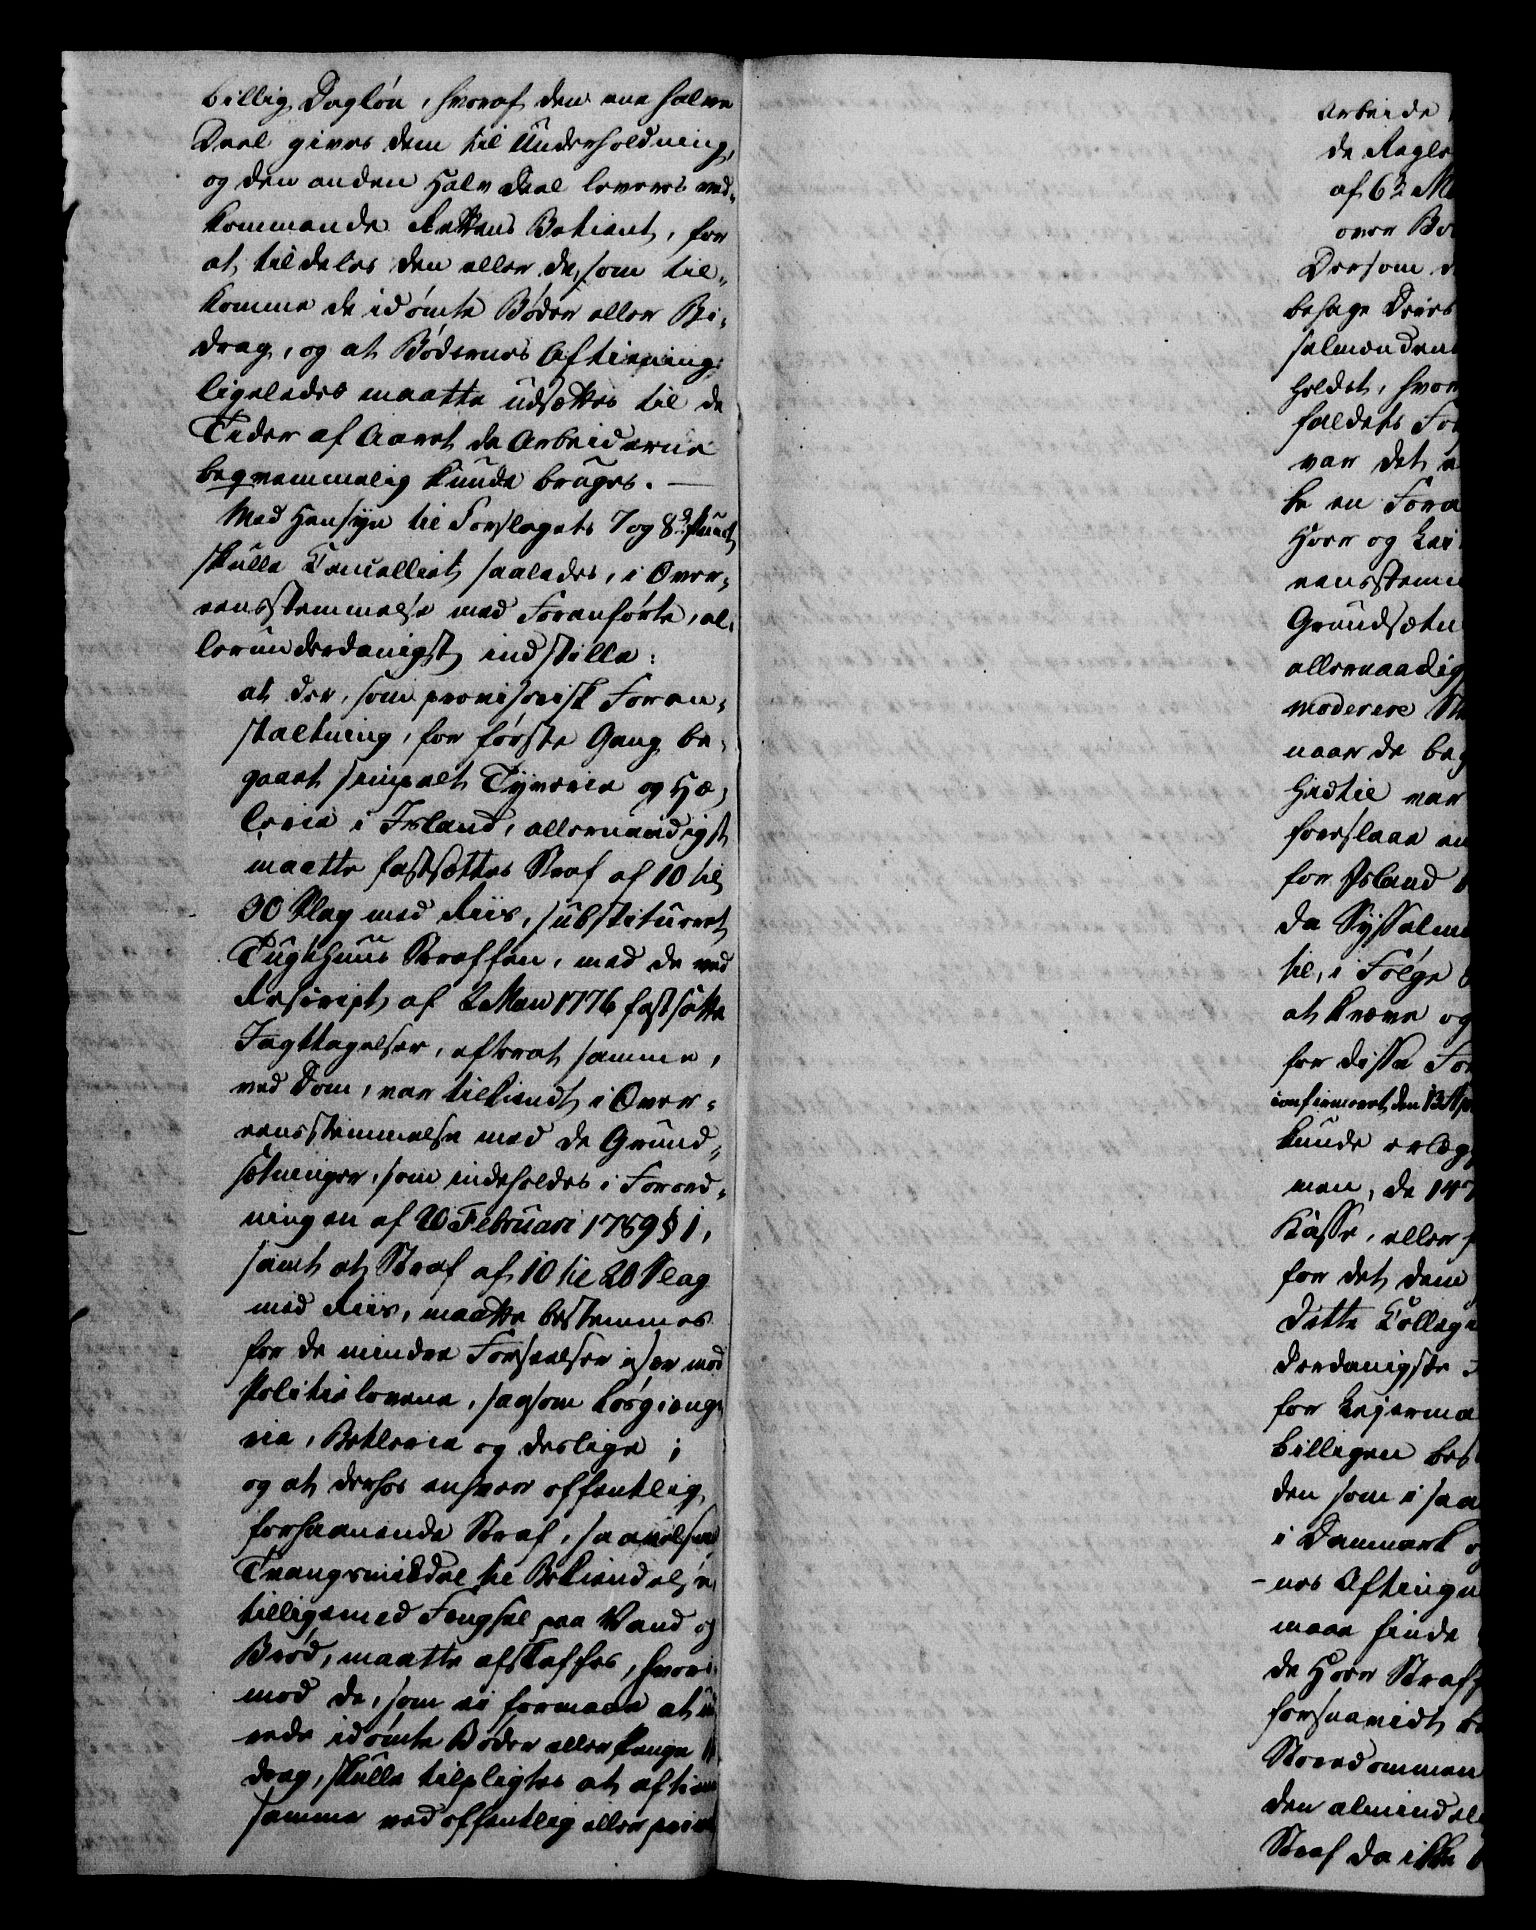 billig Dagløn, hvoraf den ene halve
Deel gives dem til Underholdning,
og den anden Halvdeel leveres ved-
kommende Rettens Betient, for
at tildeles den eller de, som til-
komme de idømte Bøder eller Bi-
drag, og at Bødernes Aftiening
ligeledes maatte udsættes til de
Tider af Aaret da Arbeiderne
beqvemmelig kunde bruges. —
Med Hensyn til Forslagets 7 og 8de Punct
skulle Cancelliet saaledes, i Over-
eensstemmelse med Foranførte, al-
lerunderdanigst indstille:
at der, som provisorisk Foran-
staltning, for første Gang be-
gaaet simpelt Tyverie og Hæ-
lerie i Island, allernaadigst
maatte fastsættes Straf af 10 til
30 Slag med Riis, substitueret
Tugthuus Straffen, med de ved
Rescript af 2 Mai 1776 fastsatte
Iagttagelser, efterat samme,
ved Dom, var tilkiendt i Over-
eensstemmelse med de Grund-
sætninger, som indeholdes i Forord-
ningen af 20 Februari 1789 § 1,
samt at Straf af 10 til 20 Slag
med Riis, maatte bestemmes
for de mindre Forseelser især mod
Politielovene, saasom Løsgienge-
rie, Betlerie og deslige;
og at derhos enhver offentlig
forhaanende Straf, saavelsom
Tvangsmiddel til Bekiendelse
tilligemed Fængsel paa Vand og
Brød, maatte afskaffes, hvori-
mod de, som ei formaae at ud
rede idømte Bøder eller Penge Bi
drag, skulle tilpligtes at aftiene
samme ved offentlig eller privat
Arbeide
de Regler
af 6te M
over Be
Dersom
besage Deres
selmænden
holdet, hvor
faldets For
var det
be en Foran
Hoer og Lei
eensstemm
Grundsætn
allernaadig
moderere St
naar de beg
hidtil var
foreslaae en
for Island
da Sysselmæ
til, i Følge
at kræve og
for disse For
confirmeret den 13 Apr
kunde erlægg
men, de 147
Kasse, eller
for det dem
dette Collegi
derdanigste
for Lejermaa
billigen bes
den som i saa
i Danmark og
nes Aftingn
maae finde
de Hoer Straff
forsaavidt be
Storedommen
den almindeli
Straf da ikke